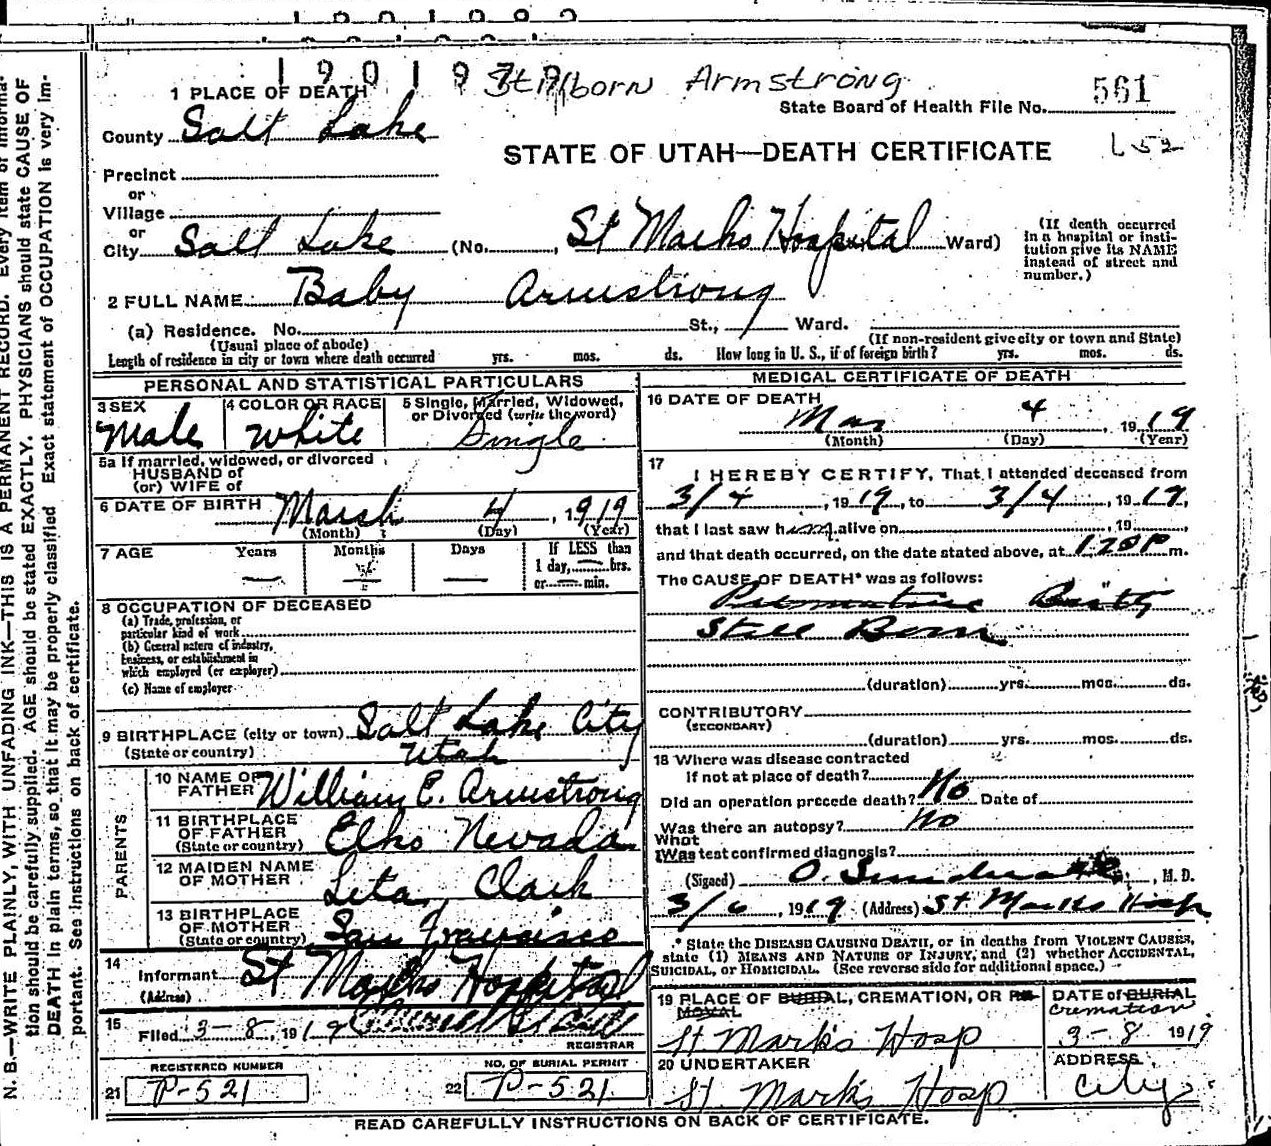 1901979 Stillborn Armstrong
1 PLACE OF DEATH
State Board of Health File No. 561
County Salt Lake
STATE OF UTAH—DEATH CERTIFICATE
L 52
Precinct
or
Village
or
City Salt Lake (No. , St Marks Hospital Ward)
(If death occurred in a hospital or institution give its NAME instead of street and number.)
2 FULL NAME Baby Armstrong
(a) Residence. No. St., Ward.
(Usual place of abode) (If non-resident give city or town and State)
Length of residence in city or town where death occurred yrs. mos. ds. How long in U. S., if of foreign birth? yrs. mos. ds.
PERSONAL AND STATISTICAL PARTICULARS
3 SEX Male
4 COLOR OR RACE White
5 Single, Married, Widowed, or Divorced (write the word) Single
5a If married, widowed, or divorced
HUSBAND of
(or) WIFE of
6 DATE OF BIRTH March 4, 1919
(Month) (Day) (Year)
7 AGE Years Months Days If LESS than
1 day, hrs.
or min.
8 OCCUPATION OF DECEASED
(a) Trade, profession, or
particular kind of work
(b) General nature of industry,
business, or establishment in
which employed (or employer)
(c) Name of employer
9 BIRTHPLACE (city or town) Salt Lake City
(State or country) Utah
PARENTS
10 NAME OF FATHER William E. Armstrong
11 BIRTHPLACE OF FATHER (State or country) Elko Nevada
12 MAIDEN NAME OF MOTHER Leta Clark
13 BIRTHPLACE OF MOTHER (State or country) San Francisco
14 Informant St Marks Hospital
(Address)
15 Filed 3-8, 1919
REGISTRAR
REGISTERED NUMBER
21 P-521
NO. OF BURIAL PERMIT
22 P-521
MEDICAL CERTIFICATE OF DEATH
16 DATE OF DEATH
Mar 4, 1919
(Month) (Day) (Year)
17 I HEREBY CERTIFY, That I attended deceased from
3/4, 1919, to 3/4, 1919,
that I last saw him alive on , 19 ,
and that death occurred, on the date stated above, at 120 P m.
The CAUSE OF DEATH* was as follows:
Premature Birth
Still Born
(duration) yrs. mos. ds.
CONTRIBUTORY
(SECONDARY)
(duration) yrs. mos. ds.
18 Where was disease contracted
If not at place of death?
Did an operation precede death? No Date of
Was there an autopsy? No
What
Was test confirmed diagnosis?
(Signed) O. , M. D.
3/6, 1919 (Address) St Marks Hosp
* State the DISEASE CAUSING DEATH, or in deaths from VIOLENT CAUSES,
state (1) MEANS AND NATURE OF INJURY, and (2) whether ACCIDENTAL,
SUICIDAL, or HOMICIDAL. (See reverse side for additional space.)
19 PLACE OF BURIAL, CREMATION, OR REMOVAL
St Mark's Hosp
DATE of BURIAL
Cremation
3-8 1919
20 UNDERTAKER
St Mark's Hosp
ADDRESS
City
READ CAREFULLY INSTRUCTIONS ON BACK OF CERTIFICATE.
N. B.—WRITE PLAINLY, WITH UNFADING INK—THIS IS A PERMANENT RECORD. Every item of informa-
tion should be carefully supplied. AGE should be stated EXACTLY. PHYSICIANS should state CAUSE OF
DEATH in plain terms, so that it may be properly classified Exact statement of OCCUPATION is very im-
portant. See instructions on back of certificate.